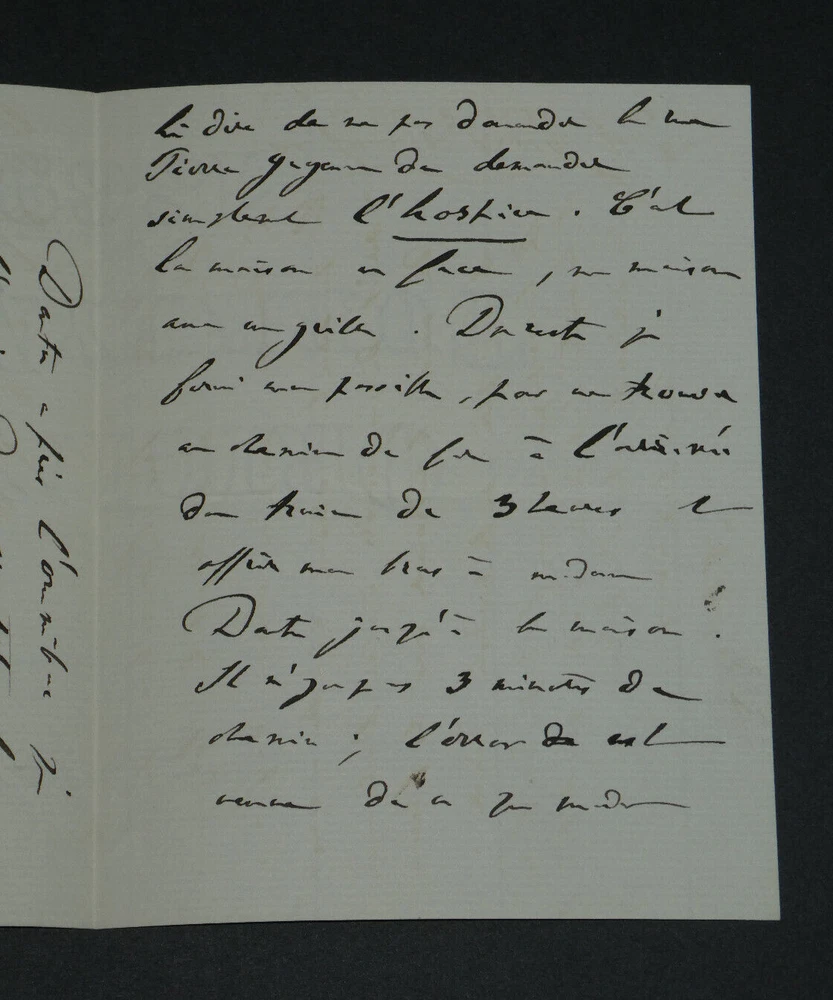 lui dire de ne pas demander la rue
Pierre                de demander
simplement l'hospice. C'est
la maison en face, une maison
avec un grille. Du reste je
ferai mon possible, pour me trouver
au chemin de fer à l'arrivée
du train de 3 heures et
offrir mon bras à madame
Dantu jusqu'à la maison.
Il n'y a pas 3 minutes de
chemin ; l'erreur de est
venue de ce que madame
Dantu a pris l'omnibus qui